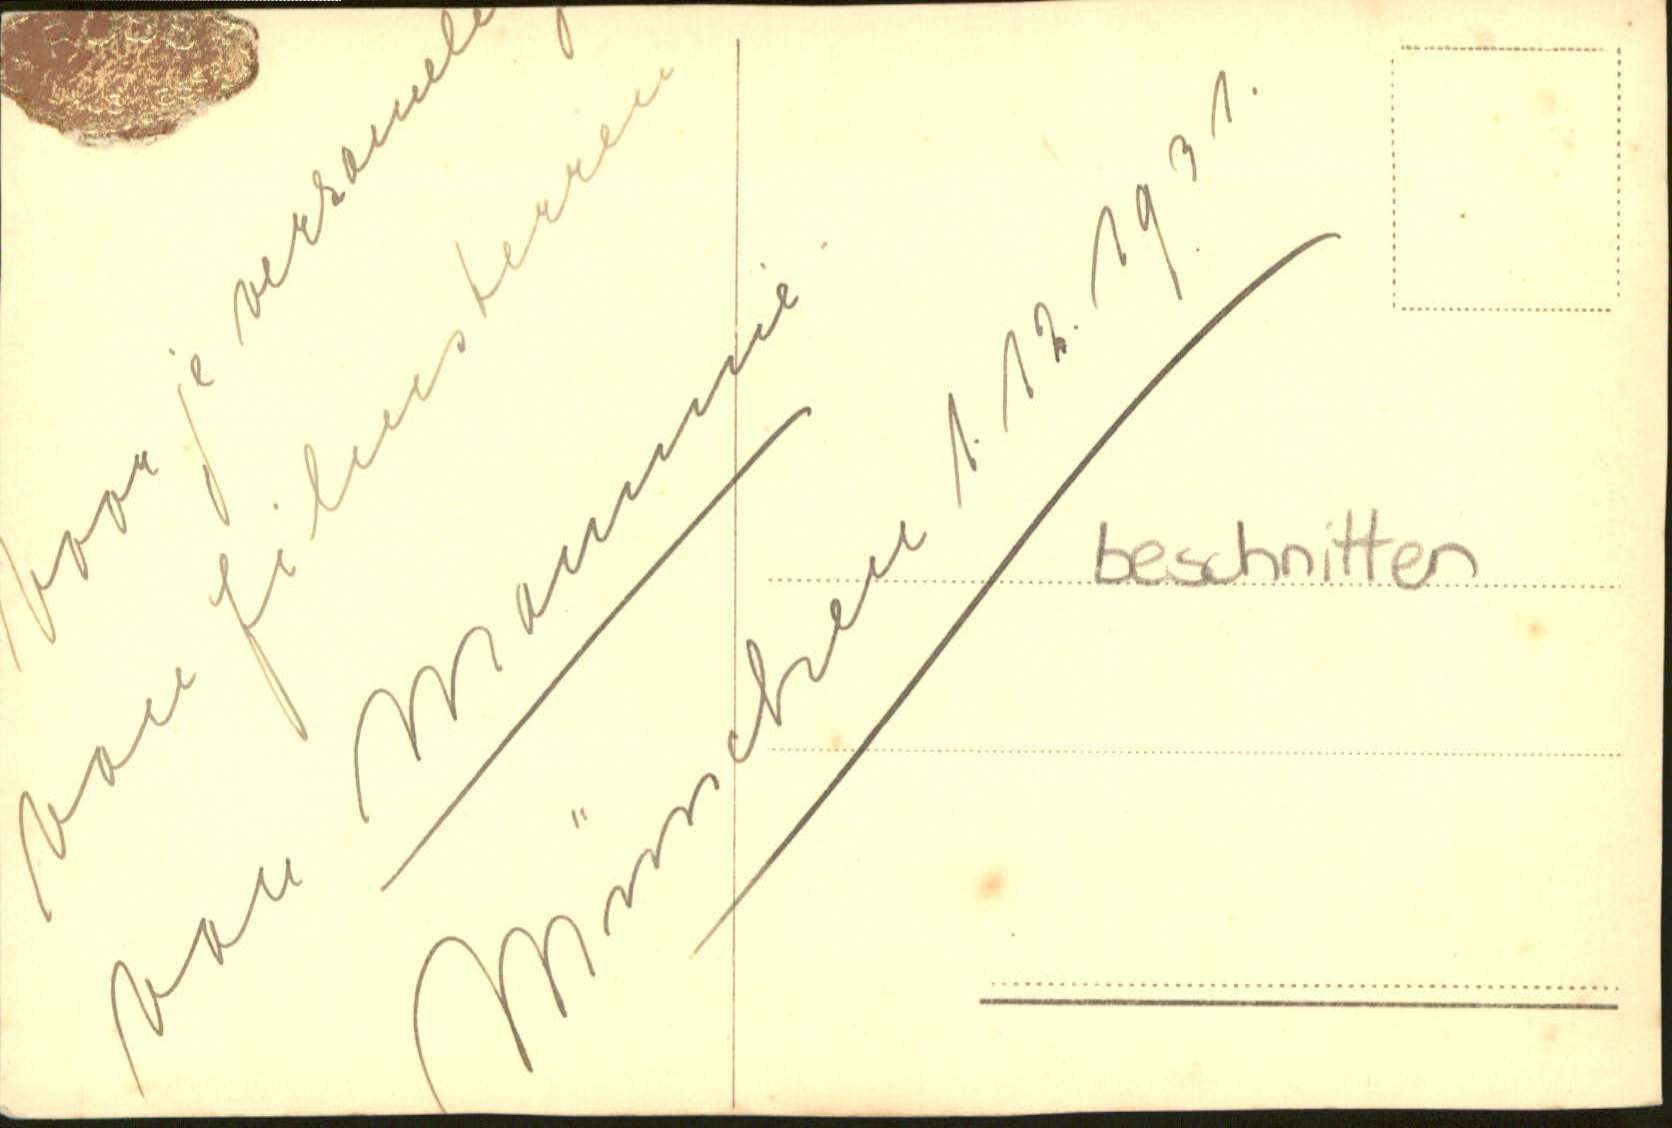 voor je verzameling
van filmsterren
van Mammie.
München 1.12.1931.
beschnitten